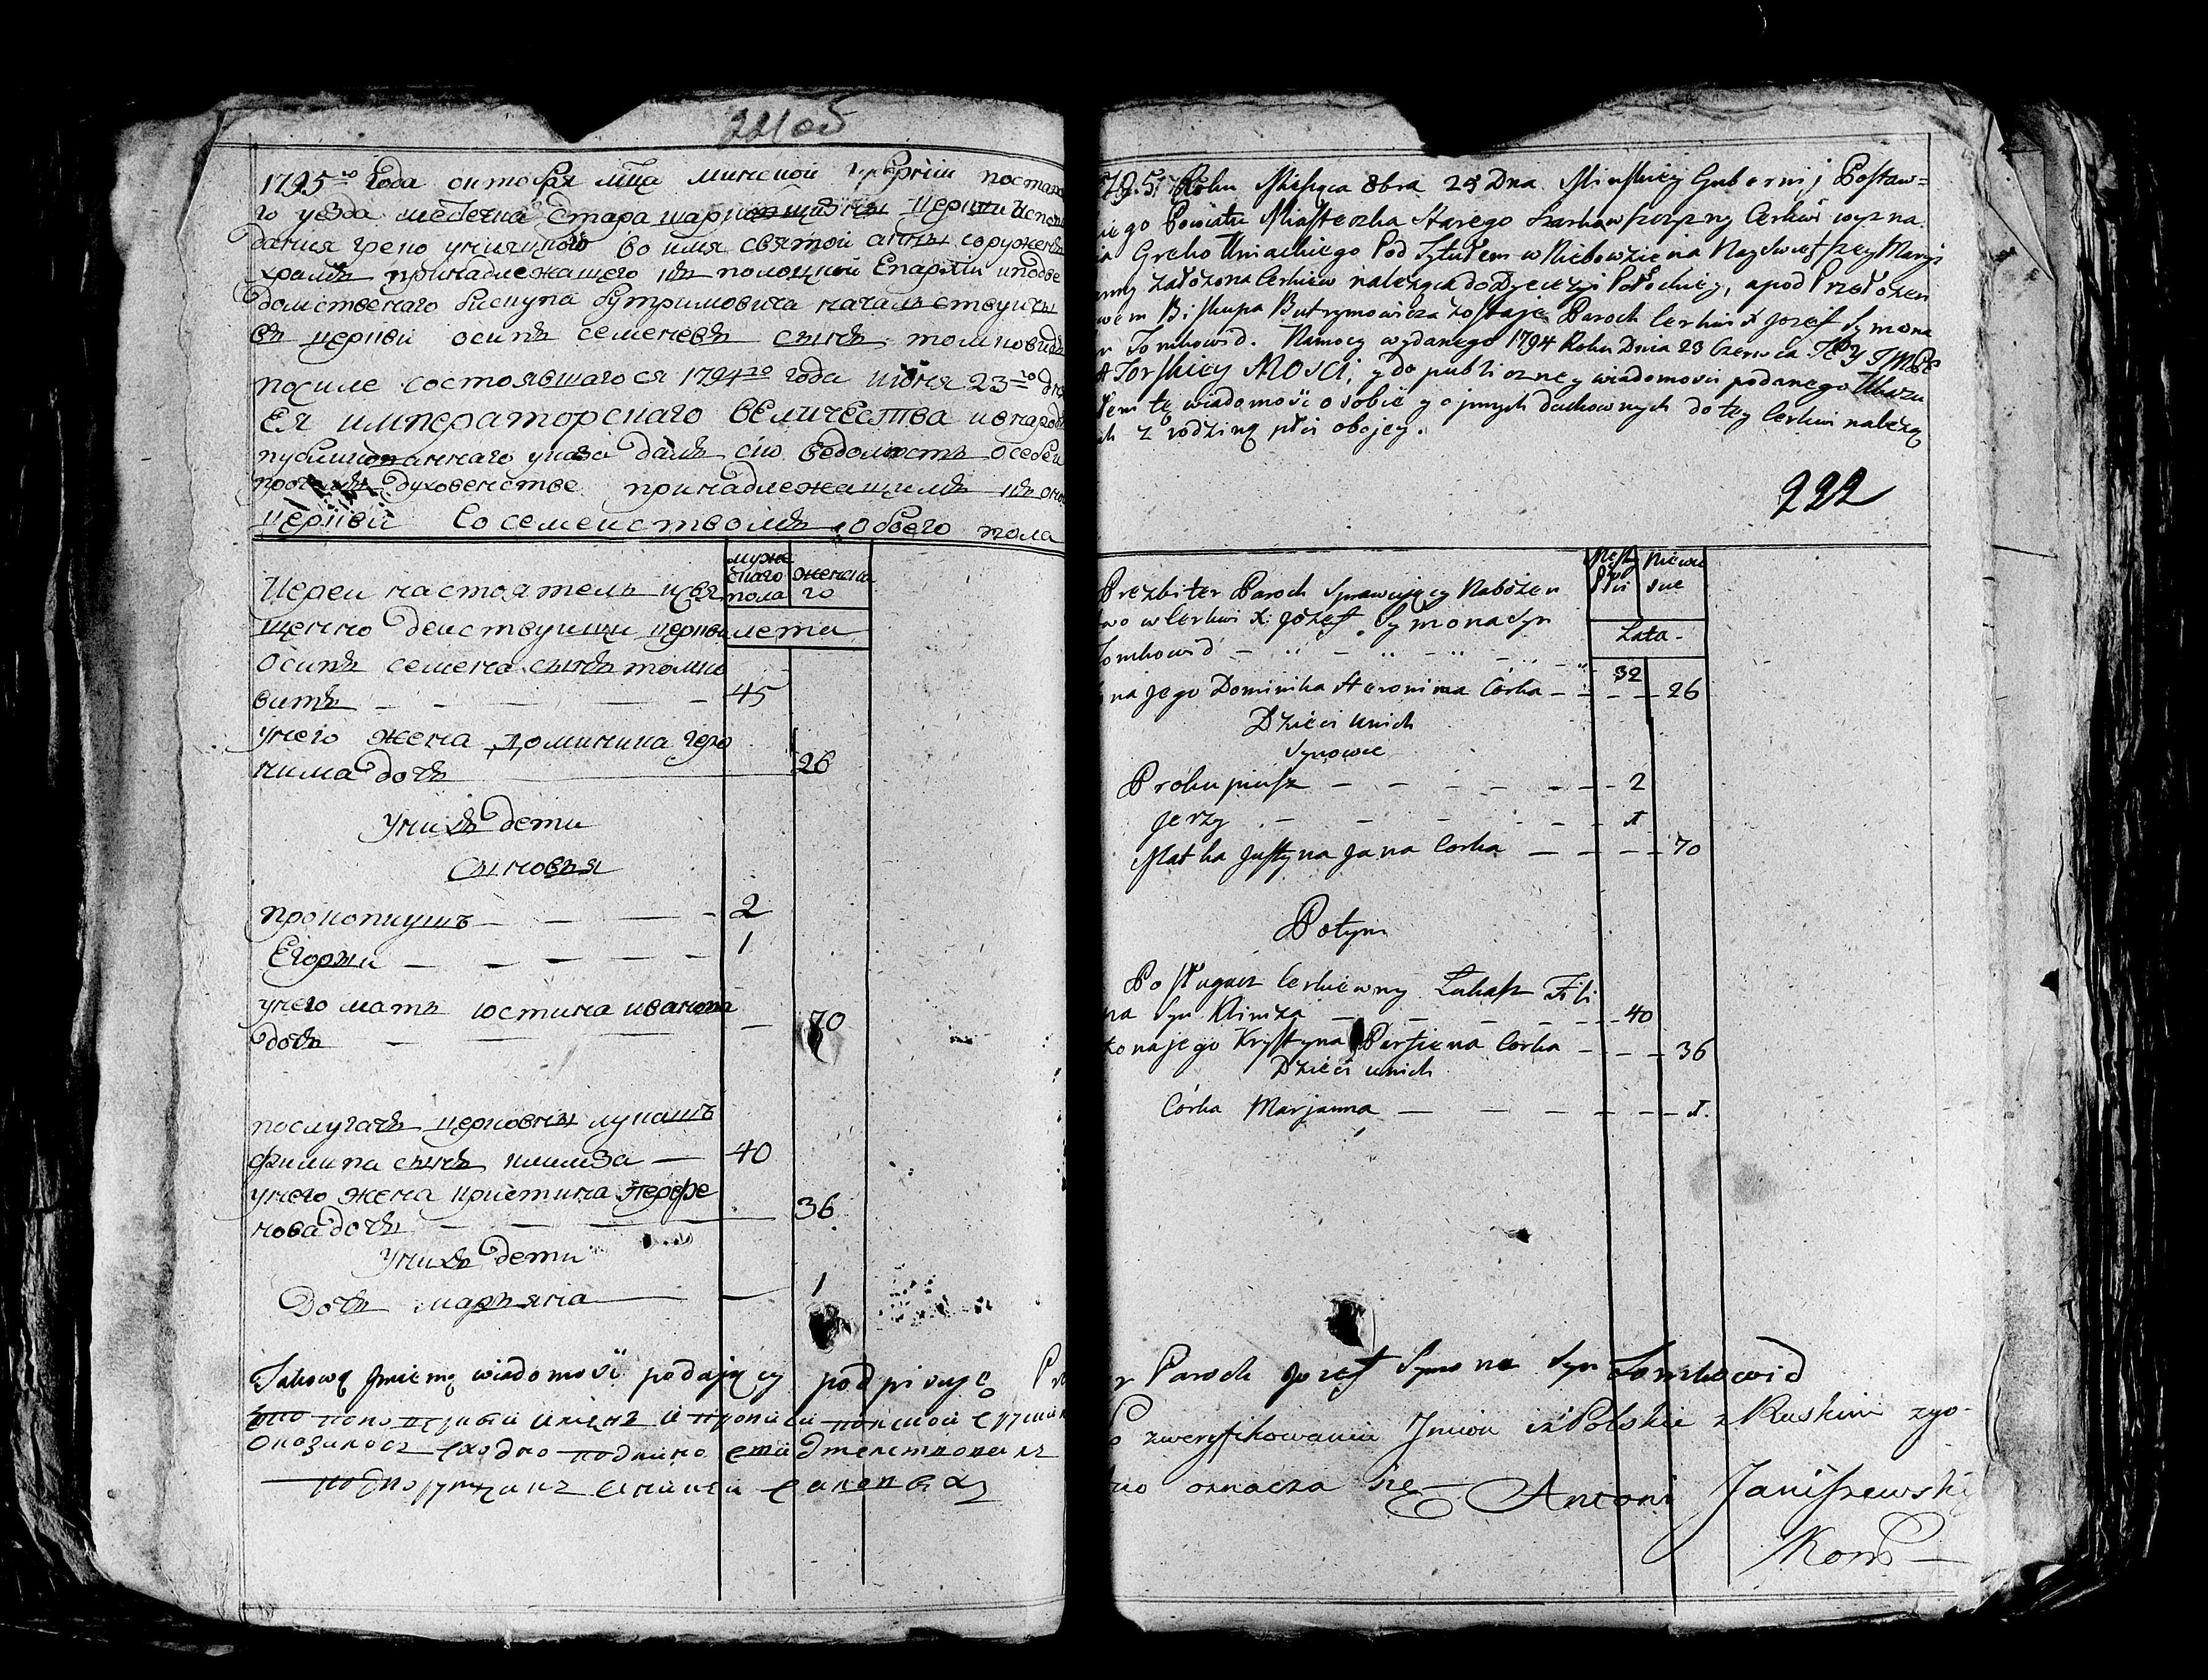 221 об
1795го Года октобря мца минской губернїи постав
го уезда местечка Стара шарковщизны церкви Испове
дания греко униацкого во имя святой анны соруженны
храмъ принадлежащего къ полоцкой Епархїи иподве
домственаго бискупа бутримовича начальствующы
въ церкви осипъ семеневъ сынъ томковидъ
посиле состоявшагося 1794го года июня 23го дня
Ея императорскаго величества ивнарод
публикованнаго указа далъ сїю ведомость осебеи
протчемъ духовенстве принадлежащимъ къ оно
церкви Сосемействомъ обоего пола
муже скаго пола
женска го
лета
Иереи настоятель исвя
щенно деиствующи церкви
осипъ семена сынъ томко
витъ 45
унего жена доминика геро
нима дочь 26
Унихъ дети
Сыновья
прокопиушъ 2
Егоржи 1
унего мать юстина иванова
дочь 70
послугачъ церковны лукашъ
филипа сынъ климза 40
унего жена кристина перфе
нова дочь 36
Унихъ дети
Дочь марьяна 1
Takową Jmienną wiadomość podający podpisuję
оказилось сходно подлино
1795 Roku Miesięca 8bra 29 Dna Minskiey Gubernij Postaw=
kiego Powiatu Miasteczka Starego Szarkowszczyzny Cerkwi wyzna
ia Greko Uniackiego Pod Tytułem w Niebowzięcia Nayświętszey Maryi
anny założona Cerkiew należąca do Dyecezyi Połockiey, a pod Przełożen
wem Biskupa Butrymowicza zostaje Paroch Cerkwi X Jozef Symona
n Tomkowid. Namocy wydanego 1794 Roku Dnia 23 Czerwca JEY IMPE
ATorskiey MOści, y do publiczney wiadomości podanego Ukazu
łem tę wiadomość o sobie y o jnnych duchownych do tey Cerkwi należą
ch z rodziną płci obojey.
222
Męsk Płci
Niewie sne
Lata
Prezbiter Paroch Sprawujący Nabożen
two w Cerkwi X: Józef Symona Syn
Tomkowid 32
ona jego Dominika Heronima Córka 26
Dzieci unich
Synowie
Prokupiusz 2
Jerzy 1
Matka Justyna Jana Corka 70
Potym
Posługacz Cerkiewny Łukasz Fili
na Syn Klimza 40
żona jego Krystyna Perfiena Corka 36
Dzieci unich
Córka Marjanna 1.
r Paroch Jozef Symona Syn Tomkowid
o zweryfikowaniu Jmion iż Polskie z Ruskim zgo-
no oznacza się Antoni Janiszewski
Kom